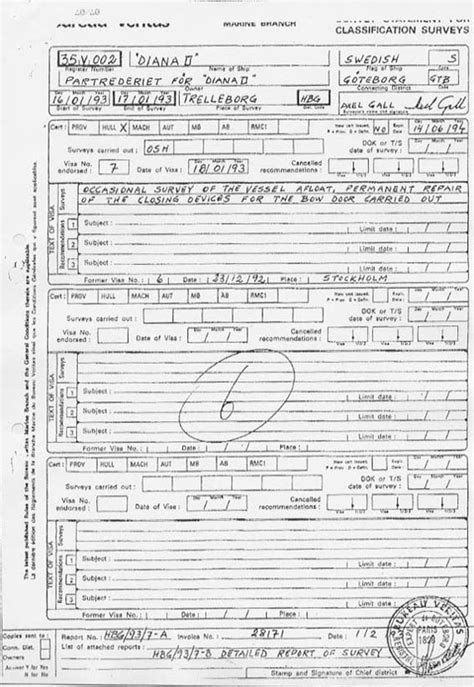 20/20
Bureau Veritas MARINE BRANCH SURVEY STATEMENT FOR
CLASSIFICATION SURVEYS
35.V.002 "DIANA II" SWEDISH S
Register Number Name of Ship Flag of Ship Code
PARTREDERIET FÖR "DIANA II" GÖTEBORG GTB
Owner Connecting District
16/01/93 17/01/93 TRELLEBORG HBG AXEL GALL
Start of Survey End of Survey Place of Survey
Cert: PROV HULL X MACH AUT MB AB RMC1 New cert issued NO Expir. 14/06/94
Surveys carried out: OSH DOK or T/S date of survey:
Visa No. endorsed: 7 Date of Visa: 18/01/93 Cancelled recommendations:
TEXT OF VISA
Surveys
OCCASIONAL SURVEY OF THE VESSEL AFLOAT, PERMANENT REPAIR
OF THE CLOSING DEVICES FOR THE BOW DOOR CARRIED OUT
Recommendations
1 Subject: Limit date: / /
2 Subject: Limit date: / /
3 Subject: Limit date: / /
Former Visa No.: 6 Date: 23/12/92 Place: STOCKHOLM
Cert: PROV HULL MACH AUT MB AB RMC1 New cert issued Expir.
Surveys carried out: DOK or T/S date of survey:
Visa No. endorsed: Date of Visa: Cancelled recommendations:
TEXT OF VISA
Surveys
6
Recommendations
1 Subject: Limit date: / /
2 Subject: Limit date: / /
3 Subject: Limit date: / /
Former Visa No.: Date: / / Place:
Cert: PROV HULL MACH AUT MB AB RMC1 New cert issued Expir.
Surveys carried out: DOK or T/S date of survey:
Visa No. endorsed: Date of Visa: Cancelled recommendations:
TEXT OF VISA
Surveys
Recommendations
1 Subject: Limit date: / /
2 Subject: Limit date: / /
3 Subject: Limit date: / /
Former Visa No.: Date: / / Place:
Copies sent to: Report No.: HBG/93/7-A Invoice No.: 28171 Date: 1/2
Conn. Dist. List of attached reports:
Owners HBG/93/7-B DETAILED REPORT OF SURVEY
Answer Y for Yes
N for No
Stamp and Signature of Chief district
BUREAU VERITAS PARIS